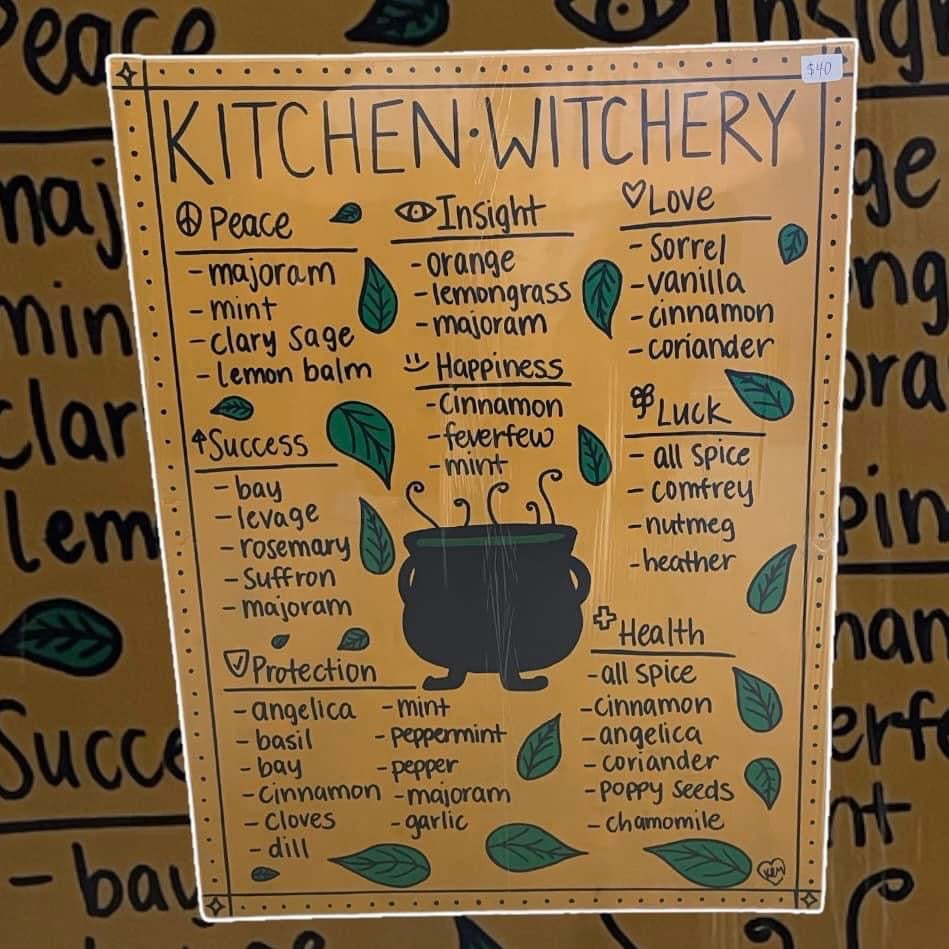 $40
KITCHEN·WITCHERY
Peace
- majoram
- mint
- clary sage
- lemon balm
Success
- bay
- levage
- rosemary
- Suffron
- majoram
Protection
- angelica
- basil
- bay
- cinnamon
- cloves
- dill
- mint
- peppermint
- pepper
- majoram
- garlic
Insight
- orange
- lemongrass
- majoram
Happiness
- Cinnamon
- feverfew
- mint
Love
- Sorrel
- vanilla
- cinnamon
- coriander
Luck
- all spice
- comfrey
- nutmeg
- heather
Health
- all spice
- cinnamon
- angelica
- coriander
- poppy seeds
- chamomile